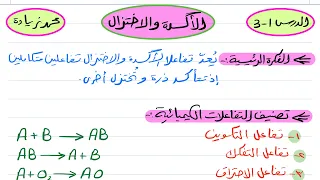 الدرس 1-3
الأكسدة والاختزال
محمد زيادة
الفكرة الرئيسية: تُعدّ تفاعلات الأكسدة والاختزال تفاعلين متكاملين
إذ تتأكسد ذرة وتُختزل أخرى.
تصنيف التفاعلات الكيميائية:
١- تفاعل التكوين A + B → AB
٢- تفاعل التفكك AB → A + B
٣- تفاعل الاحتراق A + O₂ → AO